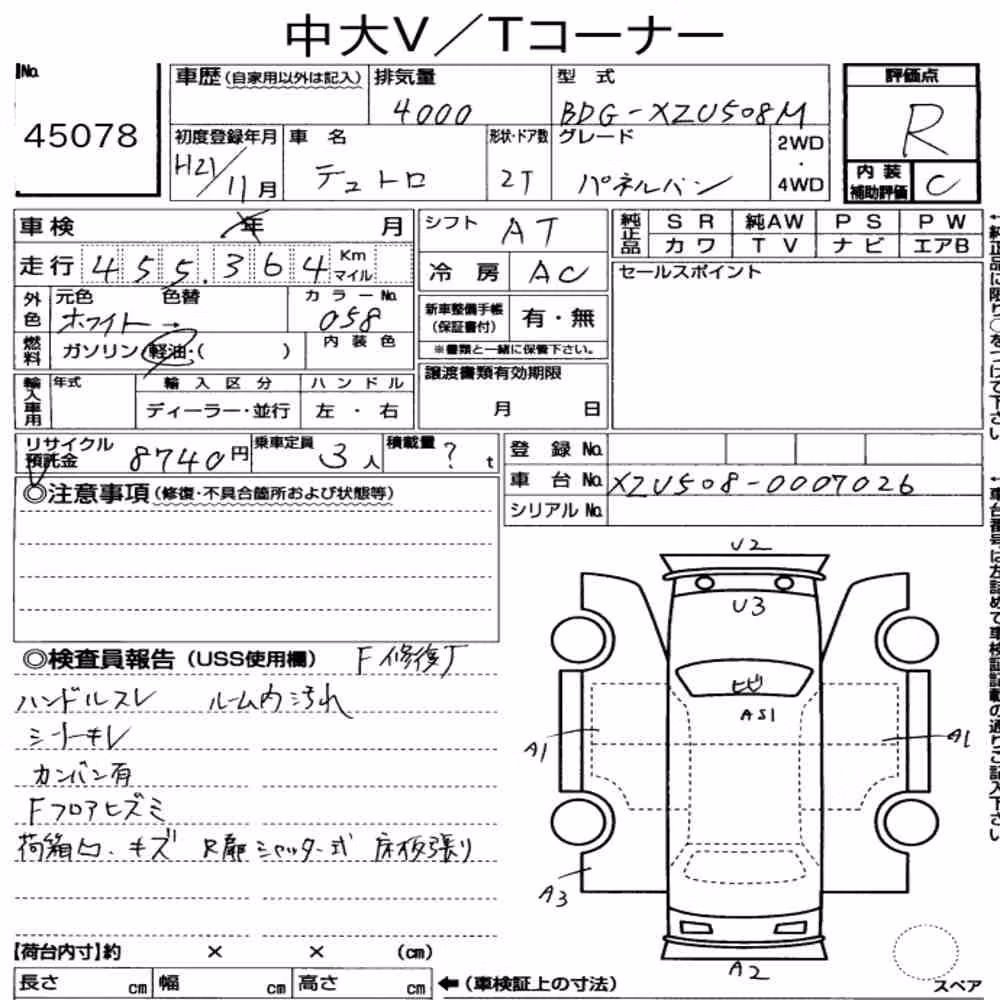 中大V／Tコーナー
No.
45078
車歴(自家用以外は記入)
排気量
4000
型式
BDG-XZU508M
評価点
R
内装補助評価
C
初度登録年月
H21/11月
車名
デュトロ
形状・ドア数
2T
グレード
パネルバン
2WD・4WD
車検 年 月
走行 455.364 Km マイル
シフト AT
冷房 AC
純正品 SR 純AW PS PW
カワ TV ナビ エアB
外色 元色 色替 カラーNo.
ホワイト → 058
燃料 ガソリン・軽油・( ) 内装色
新車整備手帳(保証書付) 有・無
※書類と一緒に保管下さい。
セールスポイント
輸入車用 年式 輸入区分 ハンドル
ディーラー・並行 左・右
譲渡書類有効期限
月 日
リサイクル預託金 8740円 乗車定員 3人 積載量 ? t
登録No.
車台No. XZU508-0007026
シリアルNo.
◎注意事項(修復・不具合箇所および状態等)
◎検査員報告(USS使用欄) F修復了
ハンドルスレ ルーム内汚れ
シートキレ
カンバン有
Fフロアヒズミ
荷箱凹、キズ R扉シャッター式 床板張り
【荷台内寸】約 × × (cm)
長さ cm 幅 cm 高さ cm
←(車検証上の寸法)
U2
U3
ヒビ
AS1
A1
A1
A3
A2
スペア
↑純正品に限り○をつけて下さい
↑車台番号は左詰めで車検証記載の通りご記入下さい